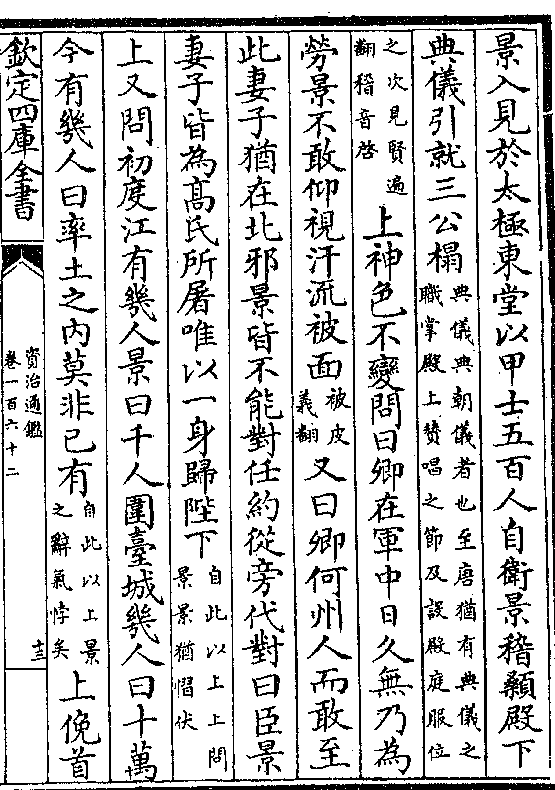 景入見於太極東堂以甲士五百人自衛景稽顙殿下
典儀引就三公榻典儀典朝儀者也至唐猶有典儀之職掌殿上贊唱之節及設殿庭服位
之次見賢遍翻稽音啓上神色不變問曰卿在軍中日久無乃為
勞景不敢仰視汗流被面被皮義翻又曰卿何州人而敢至
此妻子猶在北邪景皆不能對任約從旁代對曰臣景
妻子皆為髙氏所屠唯以一身歸陛下自此以上上問景景猶慴伏
上又問初度江有幾人景曰千人圍臺城幾人曰十萬
今有幾人曰率土之内莫非己有自此以上景之辭氣悖矣上俛首
欽定四庫全書
資治通鑑
卷一百六十二
十三